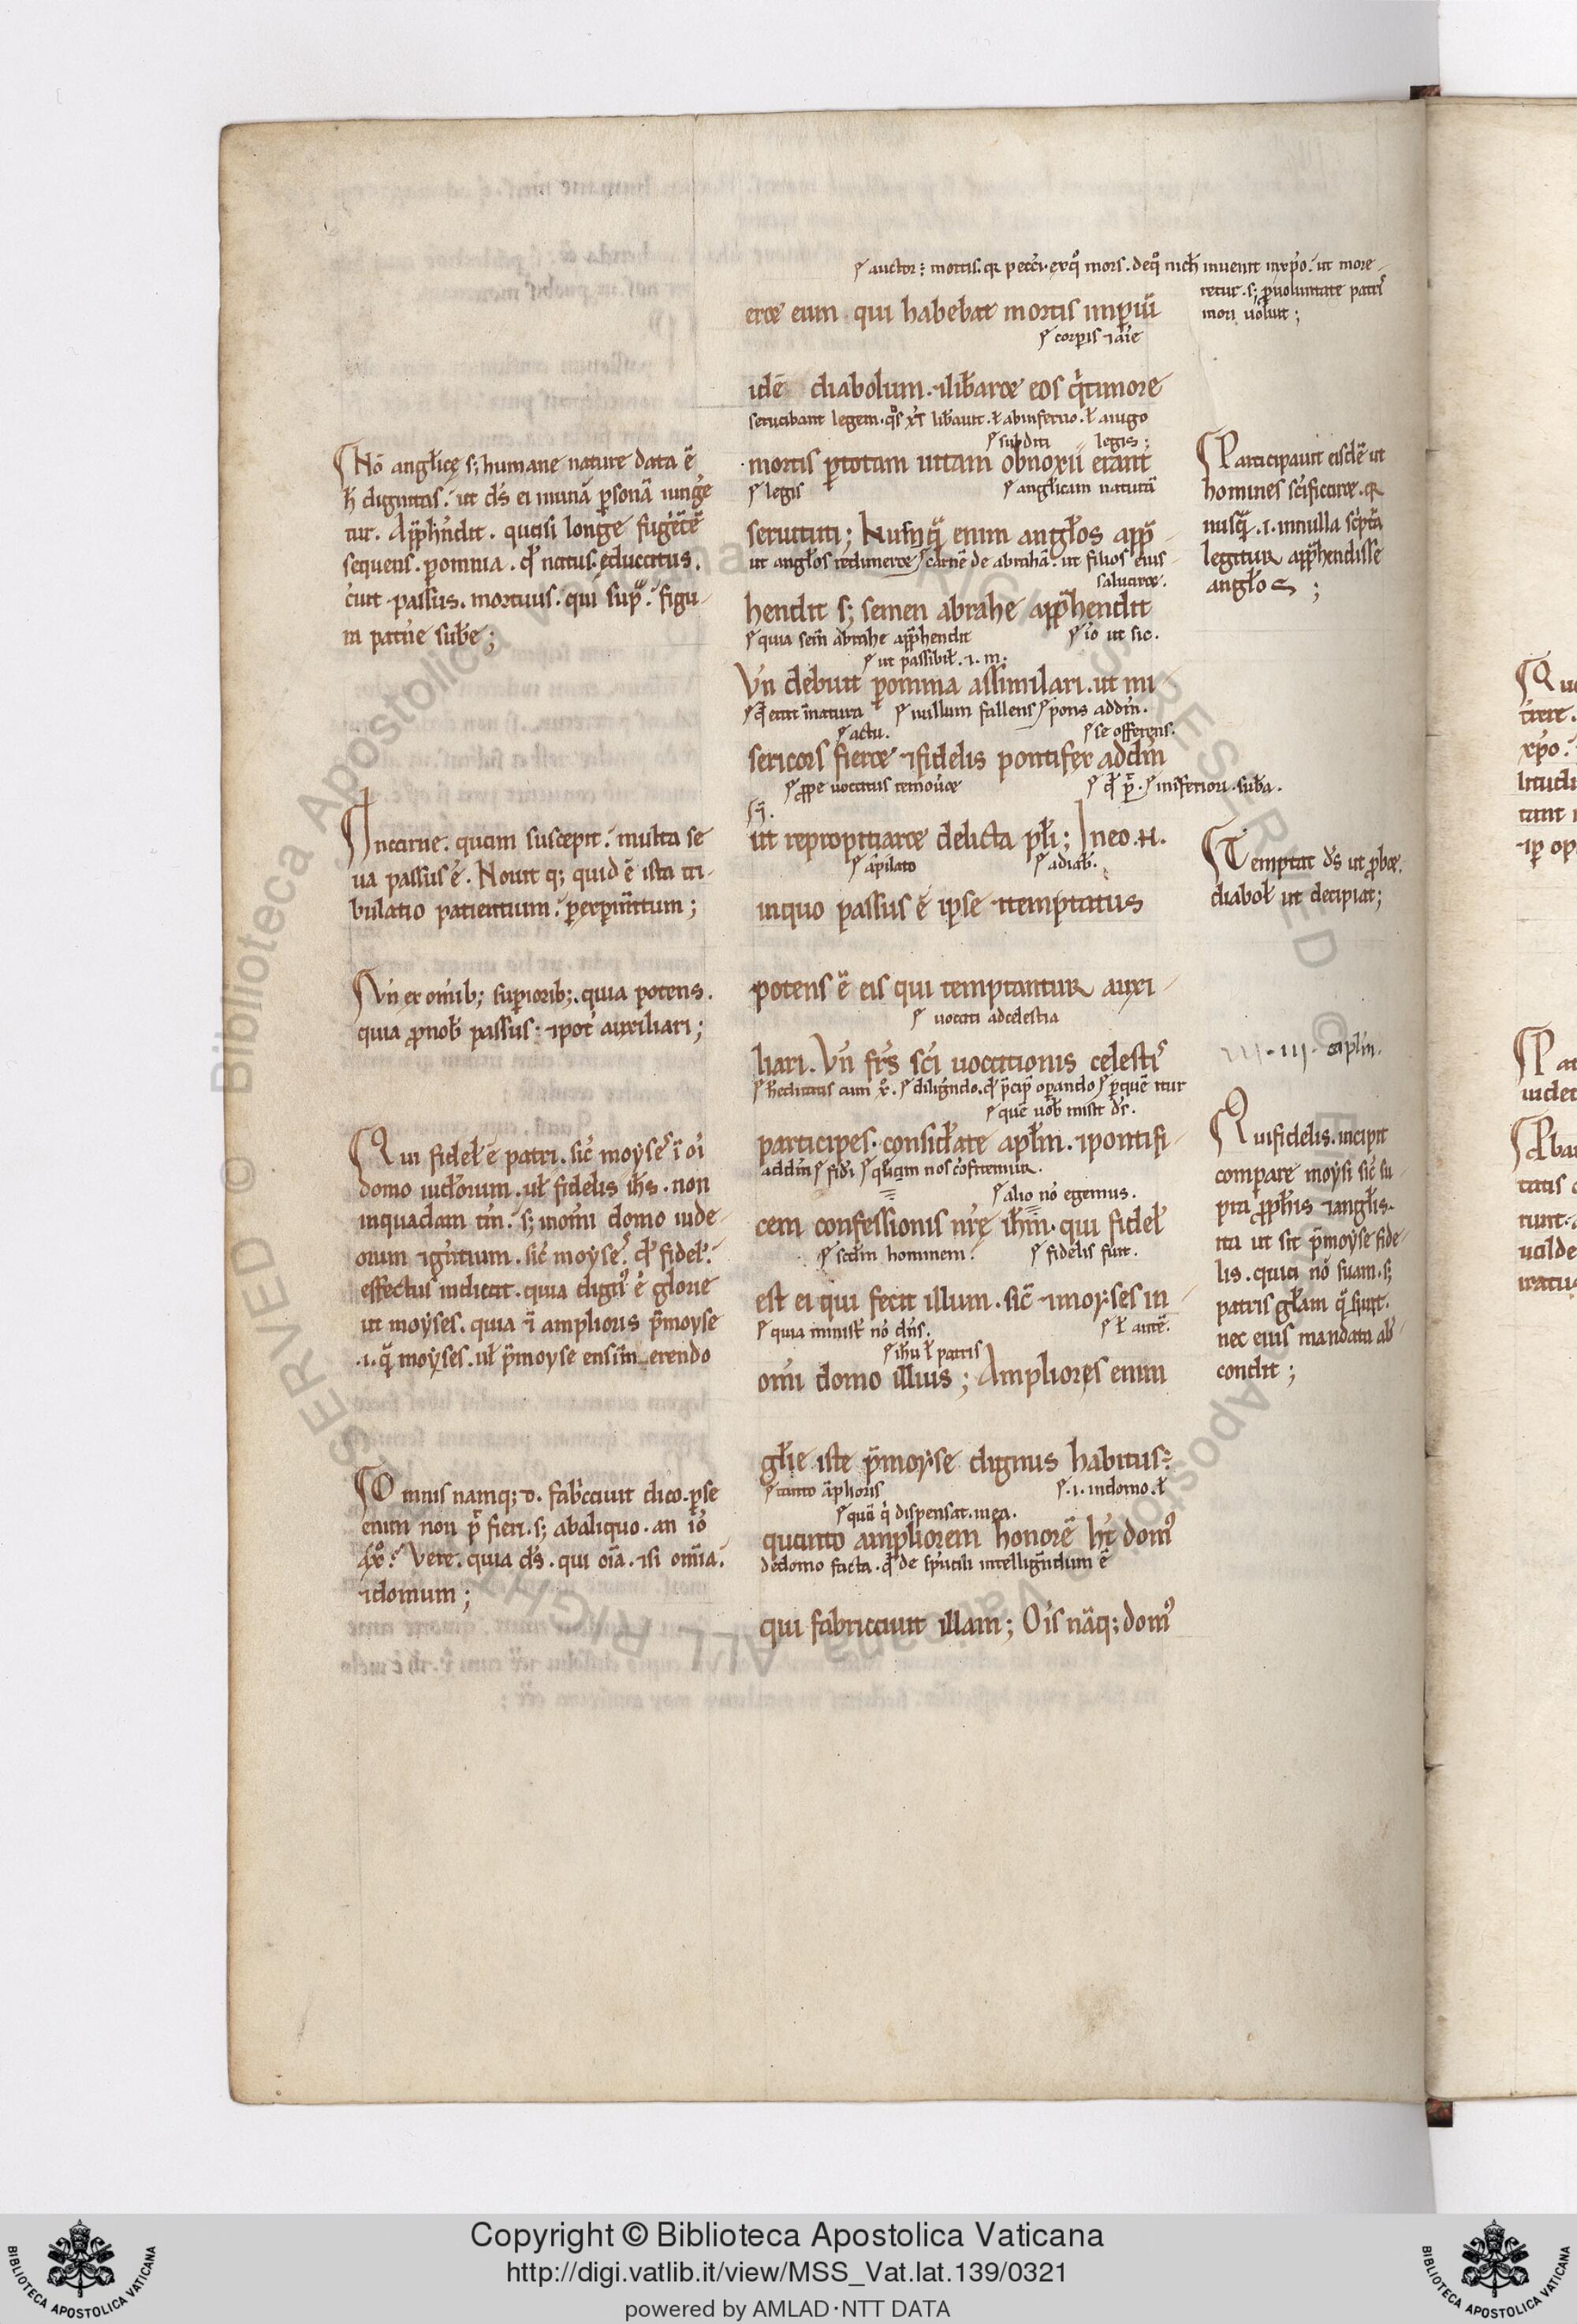 auctor mortis. qr pecc̄i. ex qͦ mors. de qͦ nich̄ inuenit in xp̄o. ut more-
retur. s; ꝑ uoluntate patris
mori uoluit ;
eret eum qui habebat mortis imꝑiū
corꝑis ⁊ aīe
idē diabolum. ⁊ lib̄aret eos qͥ timore
seruiebant legem. qͦs xp̄c lib̄auit. ł ab inferno. ł a iugo
subditi legis ;
mortis ꝑ totam uitam obnoxii erant
legis
anglicam naturā
seruituti ; Nusqᷓ enim angłos app̄-
ut angłos redimeret carnē de abrahā. ut filios eius
saluaret.
hendit s; semen abrahe app̄hendit
quia sem̄ abrahe app̄hendit
iō ut sic.
ut passibił. ⁊. m.
Vn̄ debuit ꝑ omnia assimilari. ut mi-
q̄ erat in natura nullum fallens pons ad dm̄.
actu.
se offerens.
sericors fieret ⁊ fidelis pontifex ad dm̄
ꝓpe uocatus remouere
q̄ p̄. inferiori. sub̄a.
ut repropitiaret delicta ꝑłi ; In eo. N.
a pilato
a diab̄.
in quo passus ē ipse ⁊ temptatus
potens ē eis qui temptantur auxi-
uocati ad celestia
liari. Vn̄ fr̄s sc̄i uocationis celestis
hereditatis cum xͦ. diligendo. q̄ p̄cip̄ operando ꝑ quē itur
quē uob̄ misit ds̄.
participes. consid̄ate apłm. ⁊ pontifi-
ad dm̄ fidi quam nos cōfitemur.
alio nō egemus.
cem confessionis nr̄ę ih̄m. qui fideł
scdm̄ hominem.
fidelis fuit.
est ei qui fecit illum. sic̄ ⁊ moyses in
quia minist̄ nō dn̄s.
ł autē.
ih̄u ł patris
om̄i domo illius ; Ampliores enim
głie iste p̄ moyse dignus habitus :
tanto āplioris
.i. in domo. ł
quā qͥ dispensat. in ea.
quanto ampliorem honorē h̄t domꝰ
de domo facta. q̄ de spirituali intelligendum ē
qui fabricauit illam ; Oīs nāq; domꝰ
Nō anglicę s; humane nature data ē
h̄ dignitas. ut ds̄ ei in unā ꝑsonā iunge-
tur. App̄hn̄dit. quasi longe fugētē
sequens. ꝑ omnia. q̄ natus. educatus.
passus. mortuus. qui supͣ. figu-
In carne. quam suscepit. multa se-
ua passus ē. Nouit q; quid ē ista tri-
bulatio patientium. ꝑ exꝑimtum ;
Vn̄ ex omib; suꝑiorib;. quia potens.
quia ꝓ nob̄ passus : ⁊ pot̄ auxiliari ;
Qui fideł ē patri. sic̄ moyses ī oī
domo iud̄orum. uł fidelis ih̄s. non
in quadam tm̄. s; in om̄i domo iude-
orum ⁊ gentium. sic̄ moyses. q̄ fideł.
effectus indicat. quia dignꝰ ē glorie
ut moyses. quia ⁊ī amplioris p̄ moyse
.i. qᷓ moyses. uł p̄ moyse
Omnis namq; d. fabricauit dico. ꝑ se
enim non p̄ fieri. s; ab aliquo. an iō
a xͦ ? Vere. quia ds̄. qui oīa. ⁊ si om̄ia.
⁊ domum ;
Participauit eisdē ut
homines sc̄ificaret. qr
nusqᷓ. .i. in nulla sc̄ptā
legitur app̄hendisse
angłos ;
Temptat ds̄ ut ꝓbet.
diaboł ut decipiat ;
III. caplm.
Qui fidelis. incipit
comparare moysi sic̄ su-
pra ꝓph̄is ⁊ angłis.
ita ut sit p̄ moyse fide-
lis. quia nō suam. s;
patris głam q̄siuit.
nec eius mandata ab-
condit ;
Copyright © Biblioteca Apostolica Vaticana
http://digi.vatlib.it/view/MSS_Vat.lat.139/0321
powered by AMLAD·NTT DATA
BIBLIOTECA APOSTOLICA VATICANA
BIBLIOTECA APOSTOLICA VATICANA